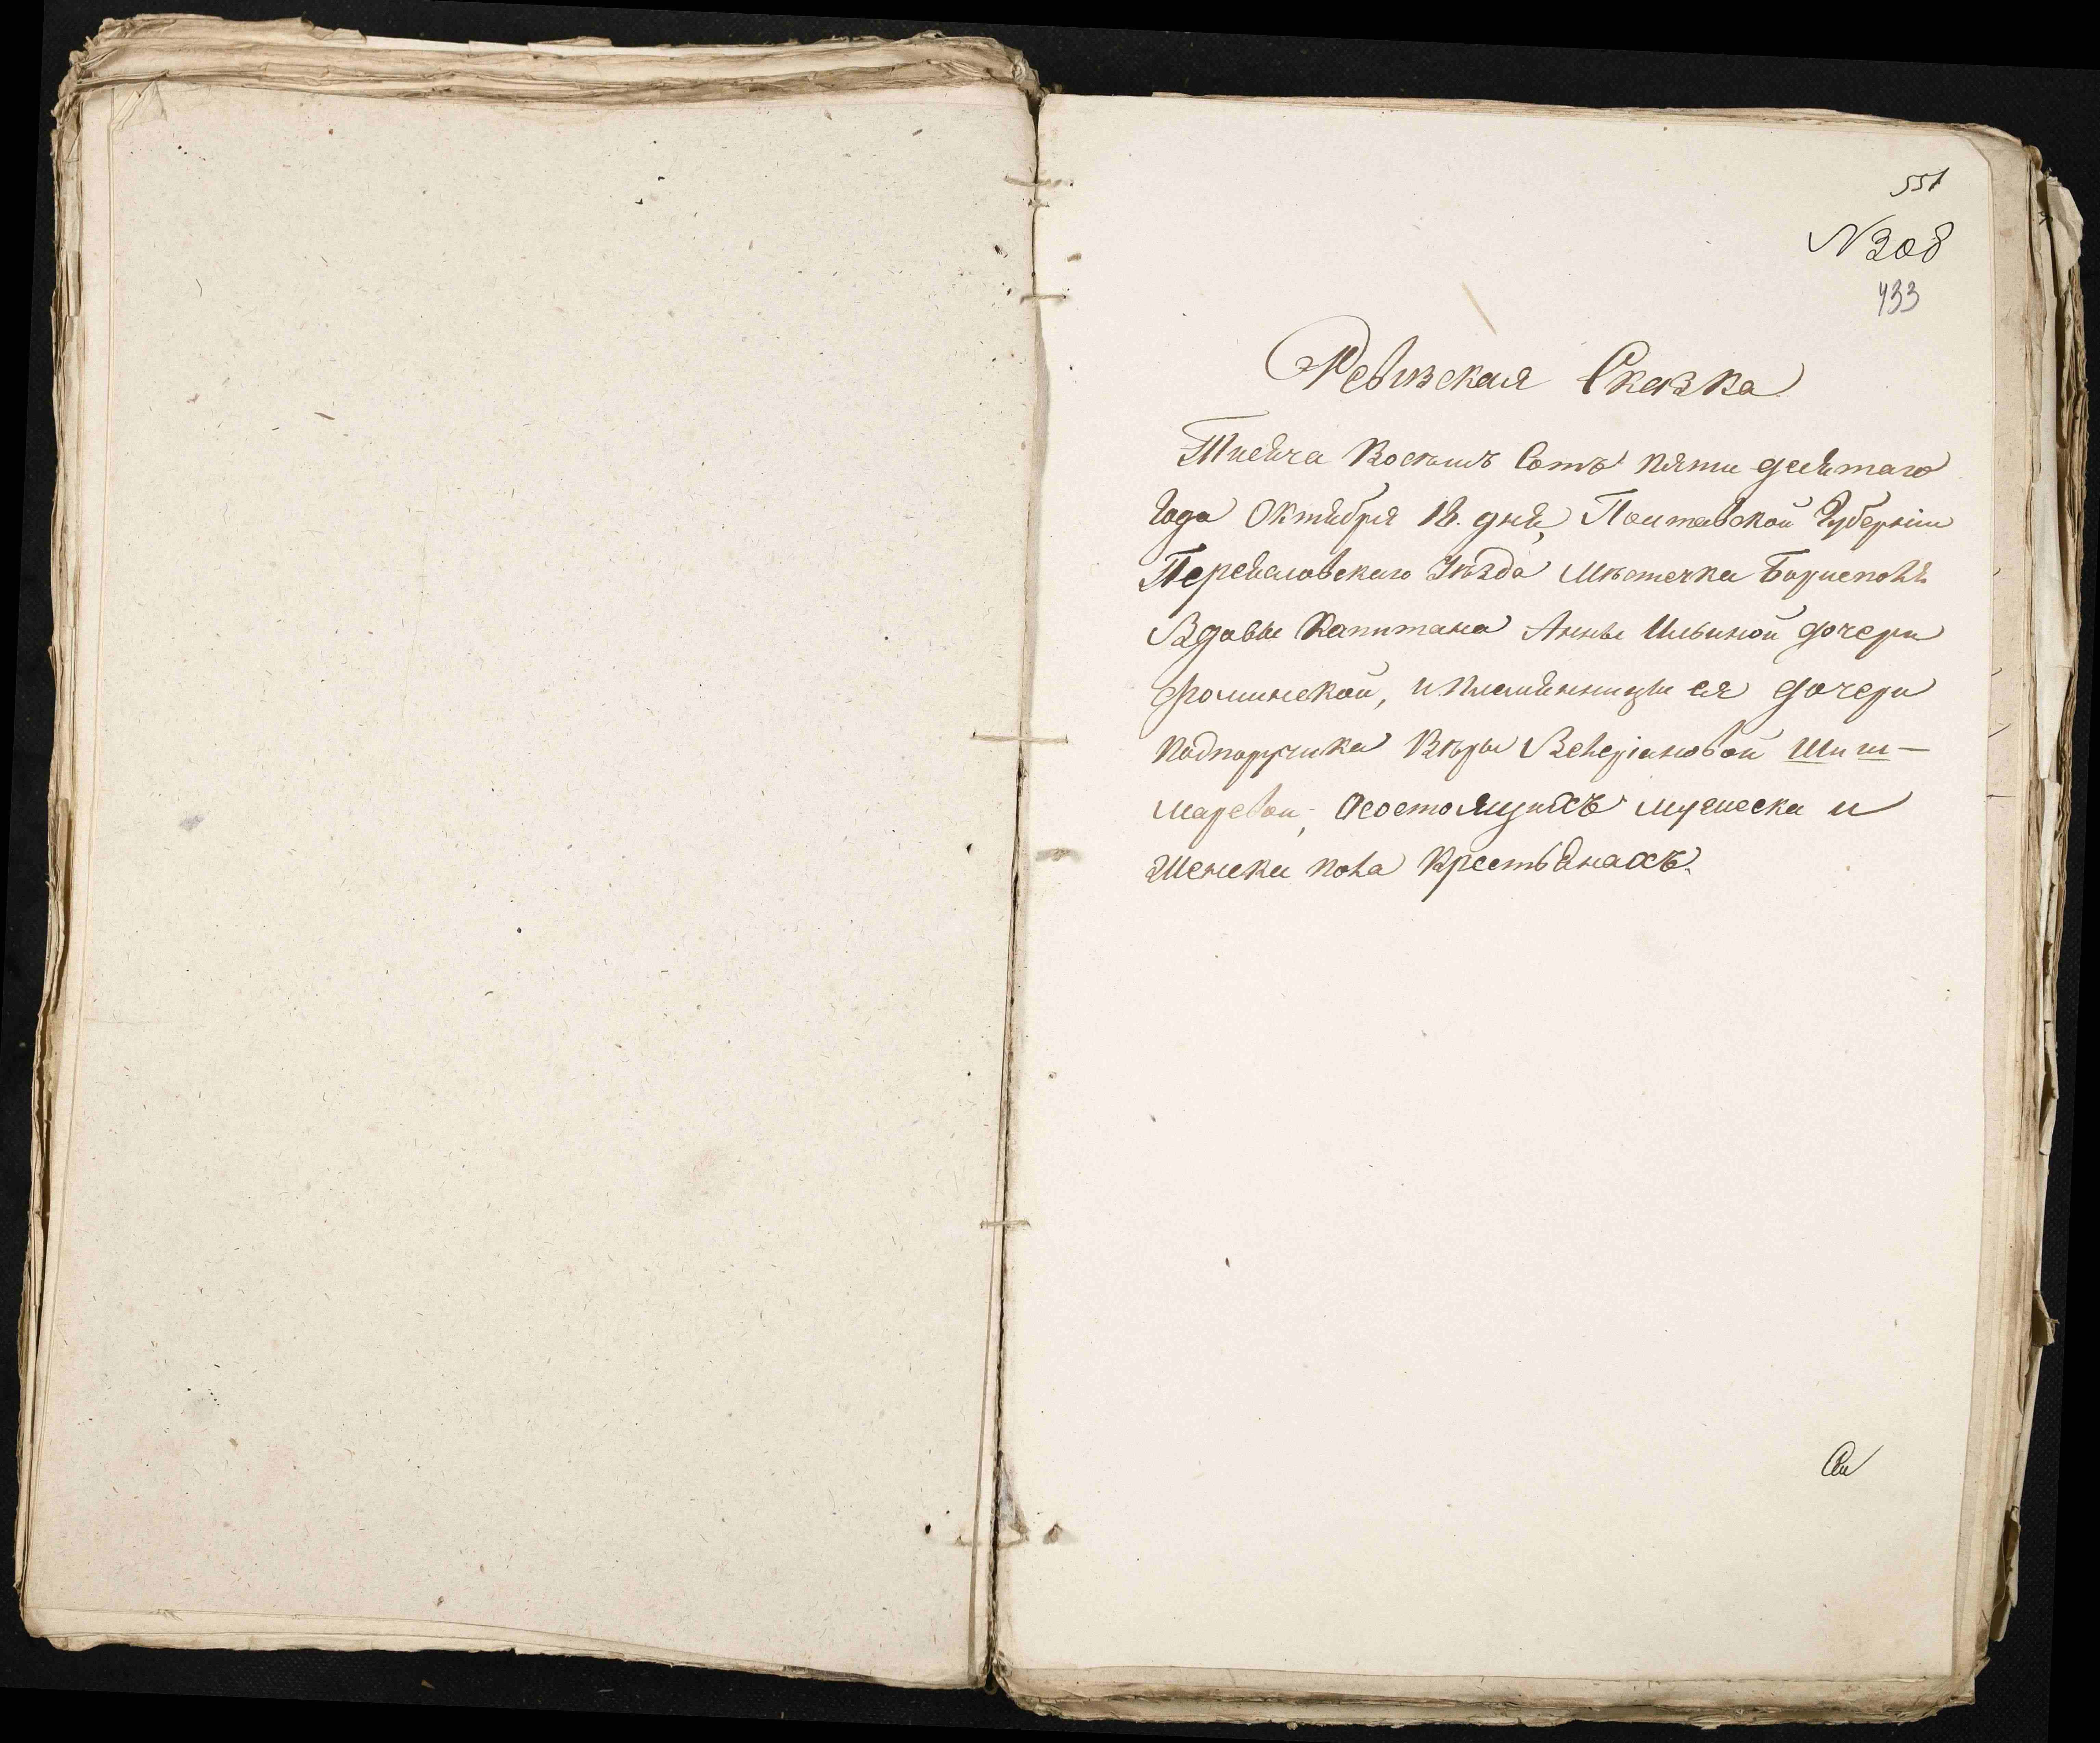 551
№ 308
433
Ревизская Сказка
Тысяча Восемь Сотъ пяти десятаго
Года Октября 18. дня, Полтавской Губерніи
Переяславскаго Уѣзда Мѣстечка Борисполя
Вдовы Капитана Анны Ильиной дочери
Фоминской, и племянницы ея дочери
подпоручика Вѣры Валеріановой Шиш-
маревой, о состоящихъ мужеска и
Женска пола Крестьянахъ.